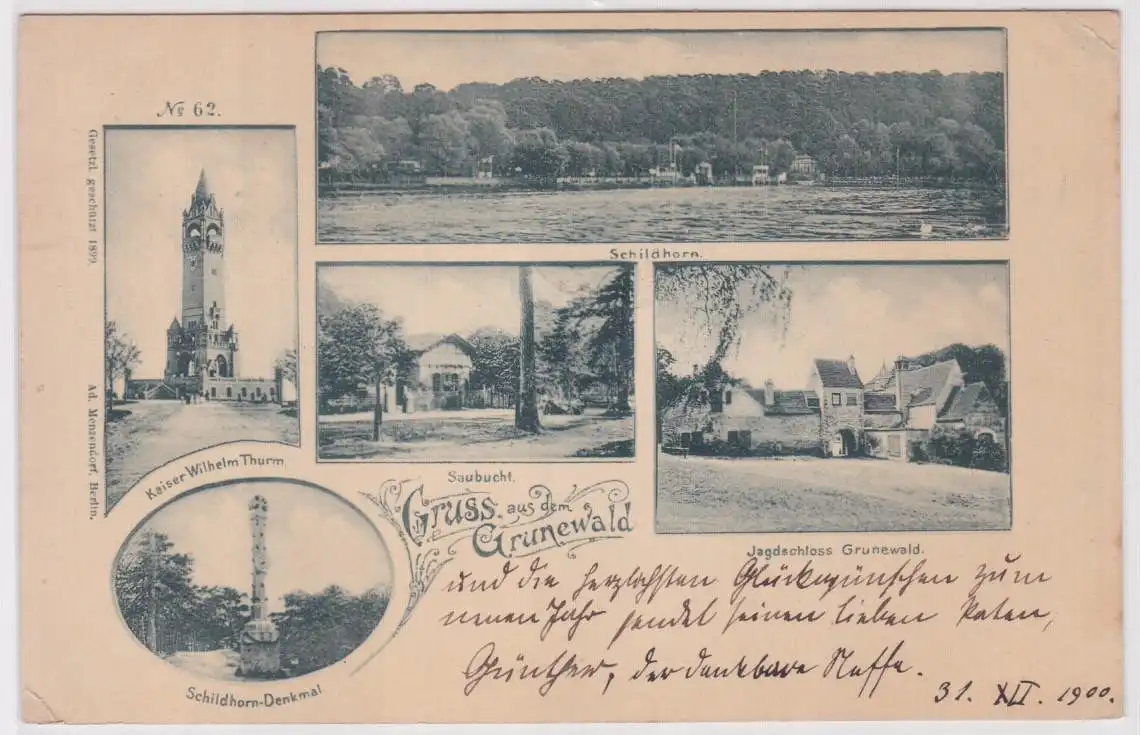 No 62.
Gesetzl. geschützt 1899.
Ad. Menzendorf, Berlin.
Schildhorn.
Kaiser Wilhelm Thurm.
Saubucht.
Jagdschloss Grunewald.
Gruss aus dem
Grunewald
Schildhorn-Denkmal
und die herzlichsten Glückwünschen zum
neuen Jahr sendet seinen lieben Paten,
Günther, der dankbare Neffe.
31. XII. 1900.